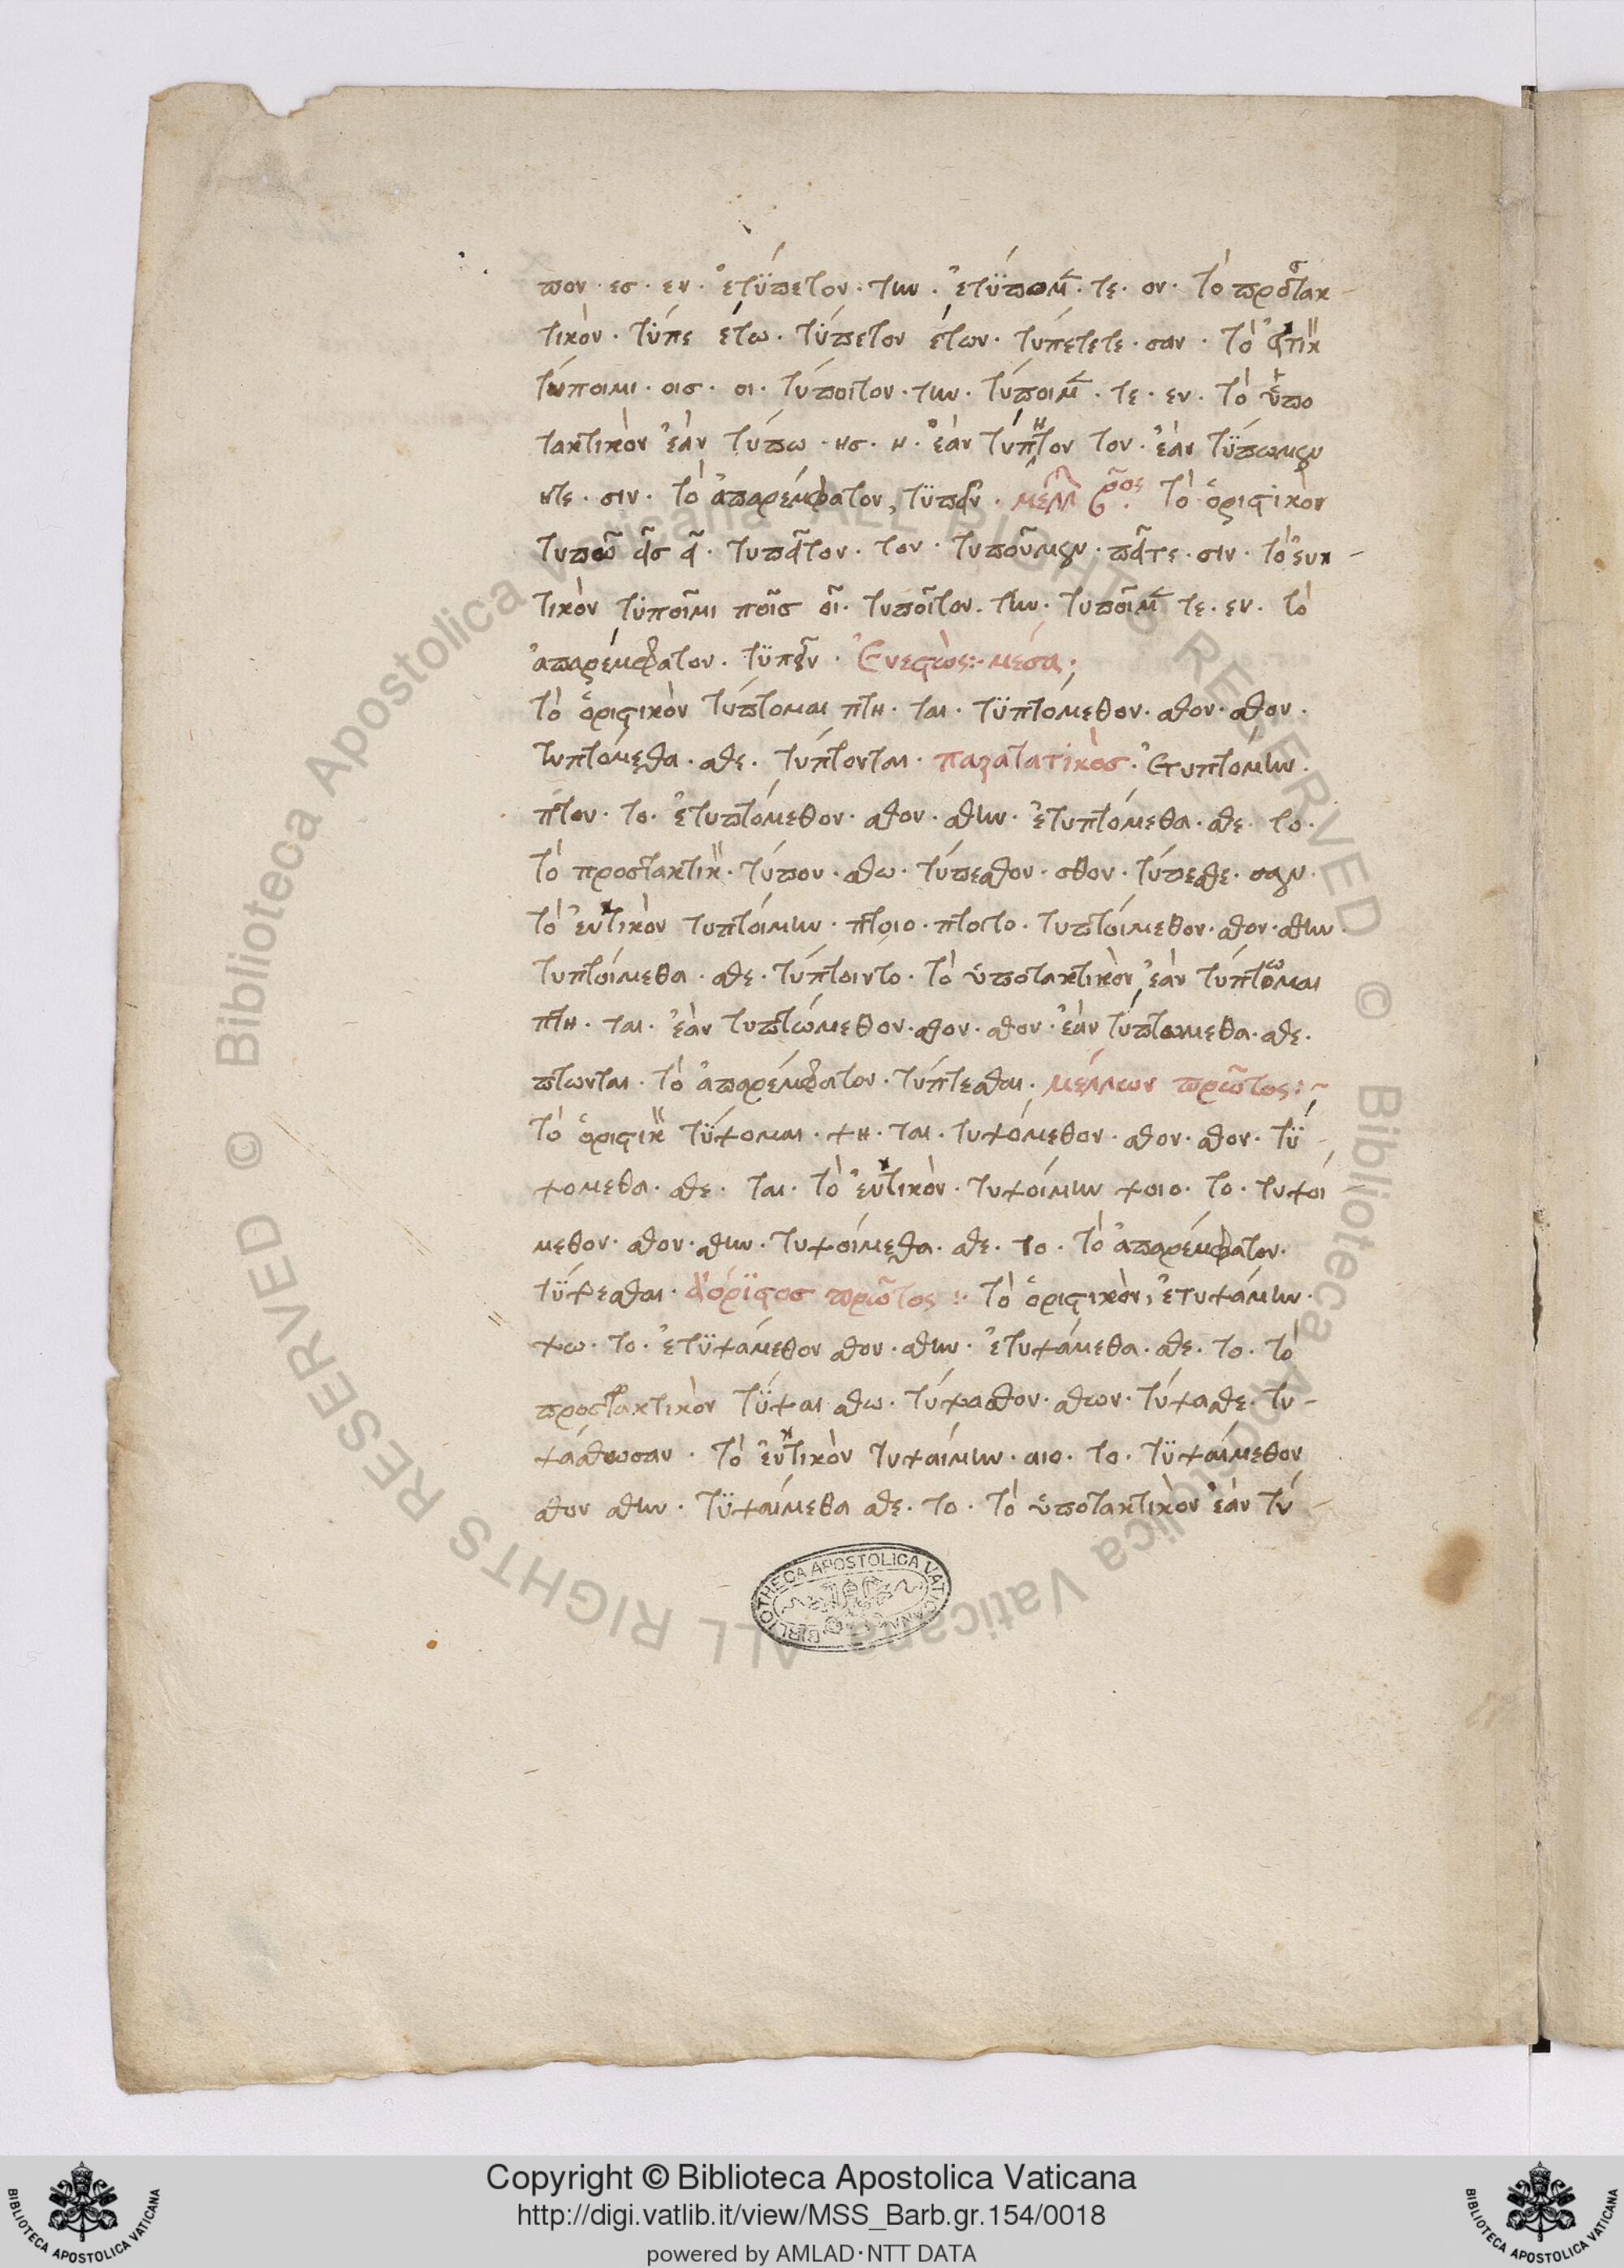 πον· εσ· εν· ἐτΰπετον· την· ἐτΰπομ̅· τε· ον· τὸ προστακ-
τικὸν· τύπε έτω· τΰπετον έτων· τυπέτετε· σαν· τὸ
τύποιμι· οισ· οι· τύποιτον· την· τύποιμ̅· τε· εν· τὸ ὑπο
τακτικὸν ἐὰν τύπω· ησ· η· ἐὰν τύπητον τον· ἐὰν τΰπωμεν
ητε· σιν· τὸ ἀπαρέμφατον, τΰπειν· μέλλ β̅ρος. τὸ ὁριστικὸν
τυπῶ εῖσ εῖ· τυπεῖτον· τον· τυποῦμεν· πεῖτε· σιν· τὸ ευκ-
τικὸν τϋποῖμι ποῖσ οῖ· τυποῖτον· την· τυποῖμ̅ τε· εν· τὸ
ἀπαρέμφατον· τϋπεῖν· Ενεστὼς:· μέσα;
τὸ ὁριστικὸν τύπτομαι πτη· ται· τϋπτόμεθον· σθον· σθον·
τυπτόμεθα· σθε· τύπτονται· παρατατικὸσ· ἐτυπτόμην·
πτου· το· ἐτυπτόμεθον· σθον· σθην· ἐτυπτόμεθα· σθε· το·
τὸ προστακτικ̏· τύπου· σθω· τύπεσθον· σθον· τύπεσθε· σαν·
τὸ ἐυκτικὸν τυπτοίμην· πτοιο· πτοιτο· τυπτοίμεθον· σθον· σθην·
τυπτοίμεθα· σθε· τύπτοιντο· τὸ ὑποτακτικὸν ἐὰν τύπτωμαι
πτη· ται· ἐὰν τυπτώμεθον· σθον· σθον· ἐὰν τύπτωμεθα· σθε·
πτωνται· τὸ ἀπαρέμφατον· τύπτεσθαι· μέλλων πρῶτος:~
τὸ ὁριστικ̏ τΰψομαι· ψη· ται· τυψόμεθον· σθον· σθον· τΰ-
ψομεθα· σθε· ται· τὸ ἐυκτικὸν· τυψοίμην ψοιο· το· τυψοί-
μεθον· σθον· σθην· τυψοίμεθα· σθε· το· τὸ ἀπαρέμφατον·
τΰψεσθαι· ἀόρϊστοσ πρῶτος:· τὸ ὁριστικὸν, ἐτυψάμην·
ψω· το· ἐτϋψάμεθον σθον· σθην· ἐτυψάμεθα· σθε· το· τὸ
προστακτικὸν τΰψαι σθω· τύψασθον· σθων· τύψασθε· τυ-
ψάσθωσαν· τὸ ἐυκτικὸν τυψαίμην· αιο· το· τϋψαίμεθον
σθον σθην· τϋψαίμεθα σθε· το· τὸ ὑποτακτικὸν ἐὰν τύ-
BIBLIOTHECA APOSTOLICA VATICANA
© Biblioteca Apostolica Vaticana ALL RIGHTS RESERVED © Biblioteca Apostolica Vaticana ALL RIGHTS RESERVED
Copyright © Biblioteca Apostolica Vaticana
http://digi.vatlib.it/view/MSS_Barb.gr.154/0018
powered by AMLAD·NTT DATA
BIBLIOTECA APOSTOLICA VATICANA
BIBLIOTECA APOSTOLICA VATICANA